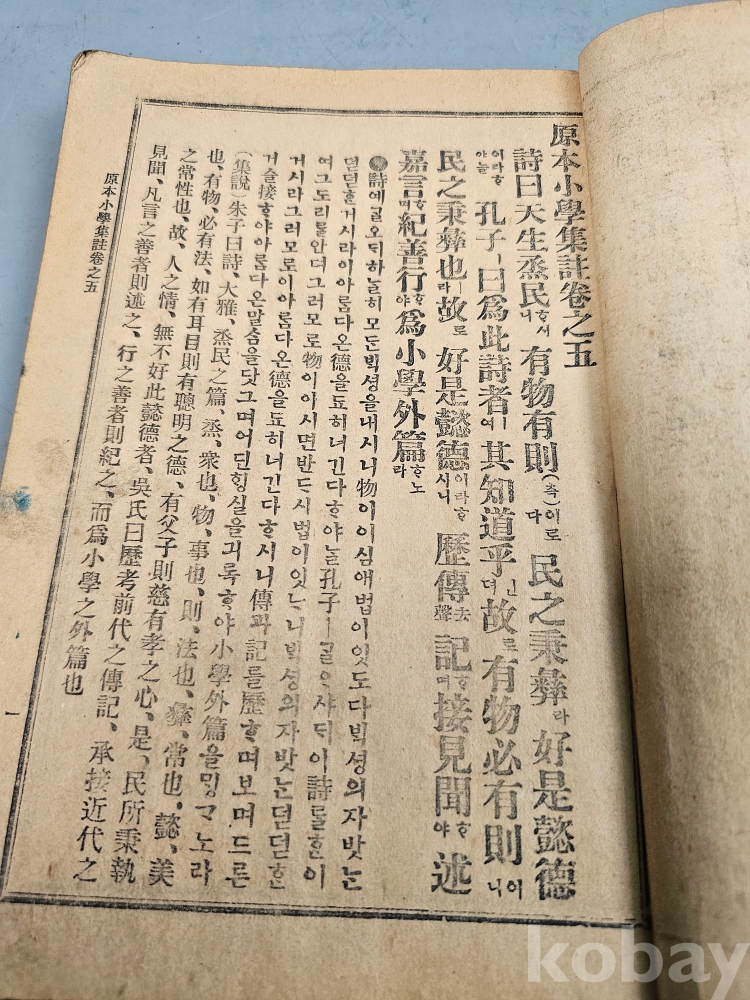 原本小學集註卷之五
詩曰天生烝民ᄒᆞ샤니 有物有則(측)이로다 民之秉彝라 好是懿德
이라ᄒᆞ야ᄂᆞᆯ 孔子ㅣ曰爲此詩者ㅣ여 其知道乎ᅟᅵᆫ뎌 故로 有物必有則이니
民之秉彝也ㅣ라 故로 好是懿德이라ᄒᆞ시니 歷傳去聲記ᄒᆞ며 接見聞ᄒᆞ야 述
嘉言ᄒᆞ며 紀善行ᄒᆞ야 爲小學外篇ᄒᆞ노라
詩에ᄀᆞᆯ오ᄃᆡ하ᄂᆞᆯ히모ᄃᆞᆫᄇᆡᆨ셩을내시니物이이심애法이잇도다ᄇᆡᆨ셩의자밧ᄂᆞᆫ
덛덛ᄒᆞᆫ거시라이아ᄅᆞᆷ다온德을됴히너긴다ᄒᆞ야ᄂᆞᆯ孔子ㅣᄀᆞᆯᄋᆞ샤ᄃᆡ이詩ᄅᆞᆯᄒᆞᆫ이
여그도리ᄅᆞᆯ안뎌그러모로物이이시면반ᄃᆞ시법이잇ᄂᆞ니ᄇᆡᆨ셩의자밧ᄂᆞᆫ덛덛ᄒᆞᆫ
거시라그러모로이아ᄅᆞᆷ다온德을됴히너긴다ᄒᆞ시니傳과記를歷ᄒᆞ며보며드른
거슬接ᄒᆞ야아ᄅᆞᆷ다온말ᄉᆞᆷ을닷그며어딘ᄒᆡᆼ실을긔록ᄒᆞ야小學外篇을ᄆᆡᆼᄀᆞ노라
(集說)朱子曰詩、大雅、烝民之篇、烝、衆也、物、事也、則、法也、彝、常也、懿、美
也、有物、必有法、如有耳目則有聰明之德、有父子則慈有孝之心、是、民所秉執
之常性也、故、人之情、無不好此懿德者、吳氏曰歷考前代之傳記、承接近代之
見聞、凡言之善者則述之、行之善者則紀之、而爲小學之外篇也
原本小學集註卷之五
一
kobay